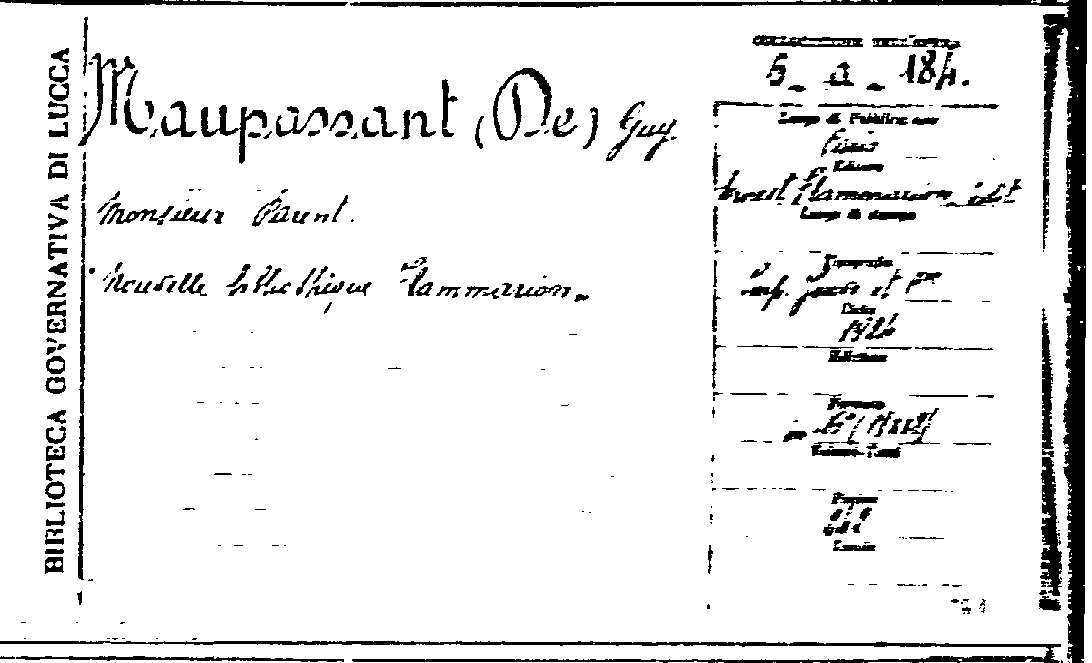 BIBLIOTECA GOVERNATIVA DI LUCCA
Maupassant (De) Guy
Monsieur Parent.
Nouvelle bibliothèque Flammarion.
5 - a - 184.
Luogo di Pubblicazione
Paris
Editore
Ernest Flammarion, édit
Luogo di stampa
Tipografia
Imp.
et
Data
Edizione
Formato
16°
Volume-Tomi
Pagine